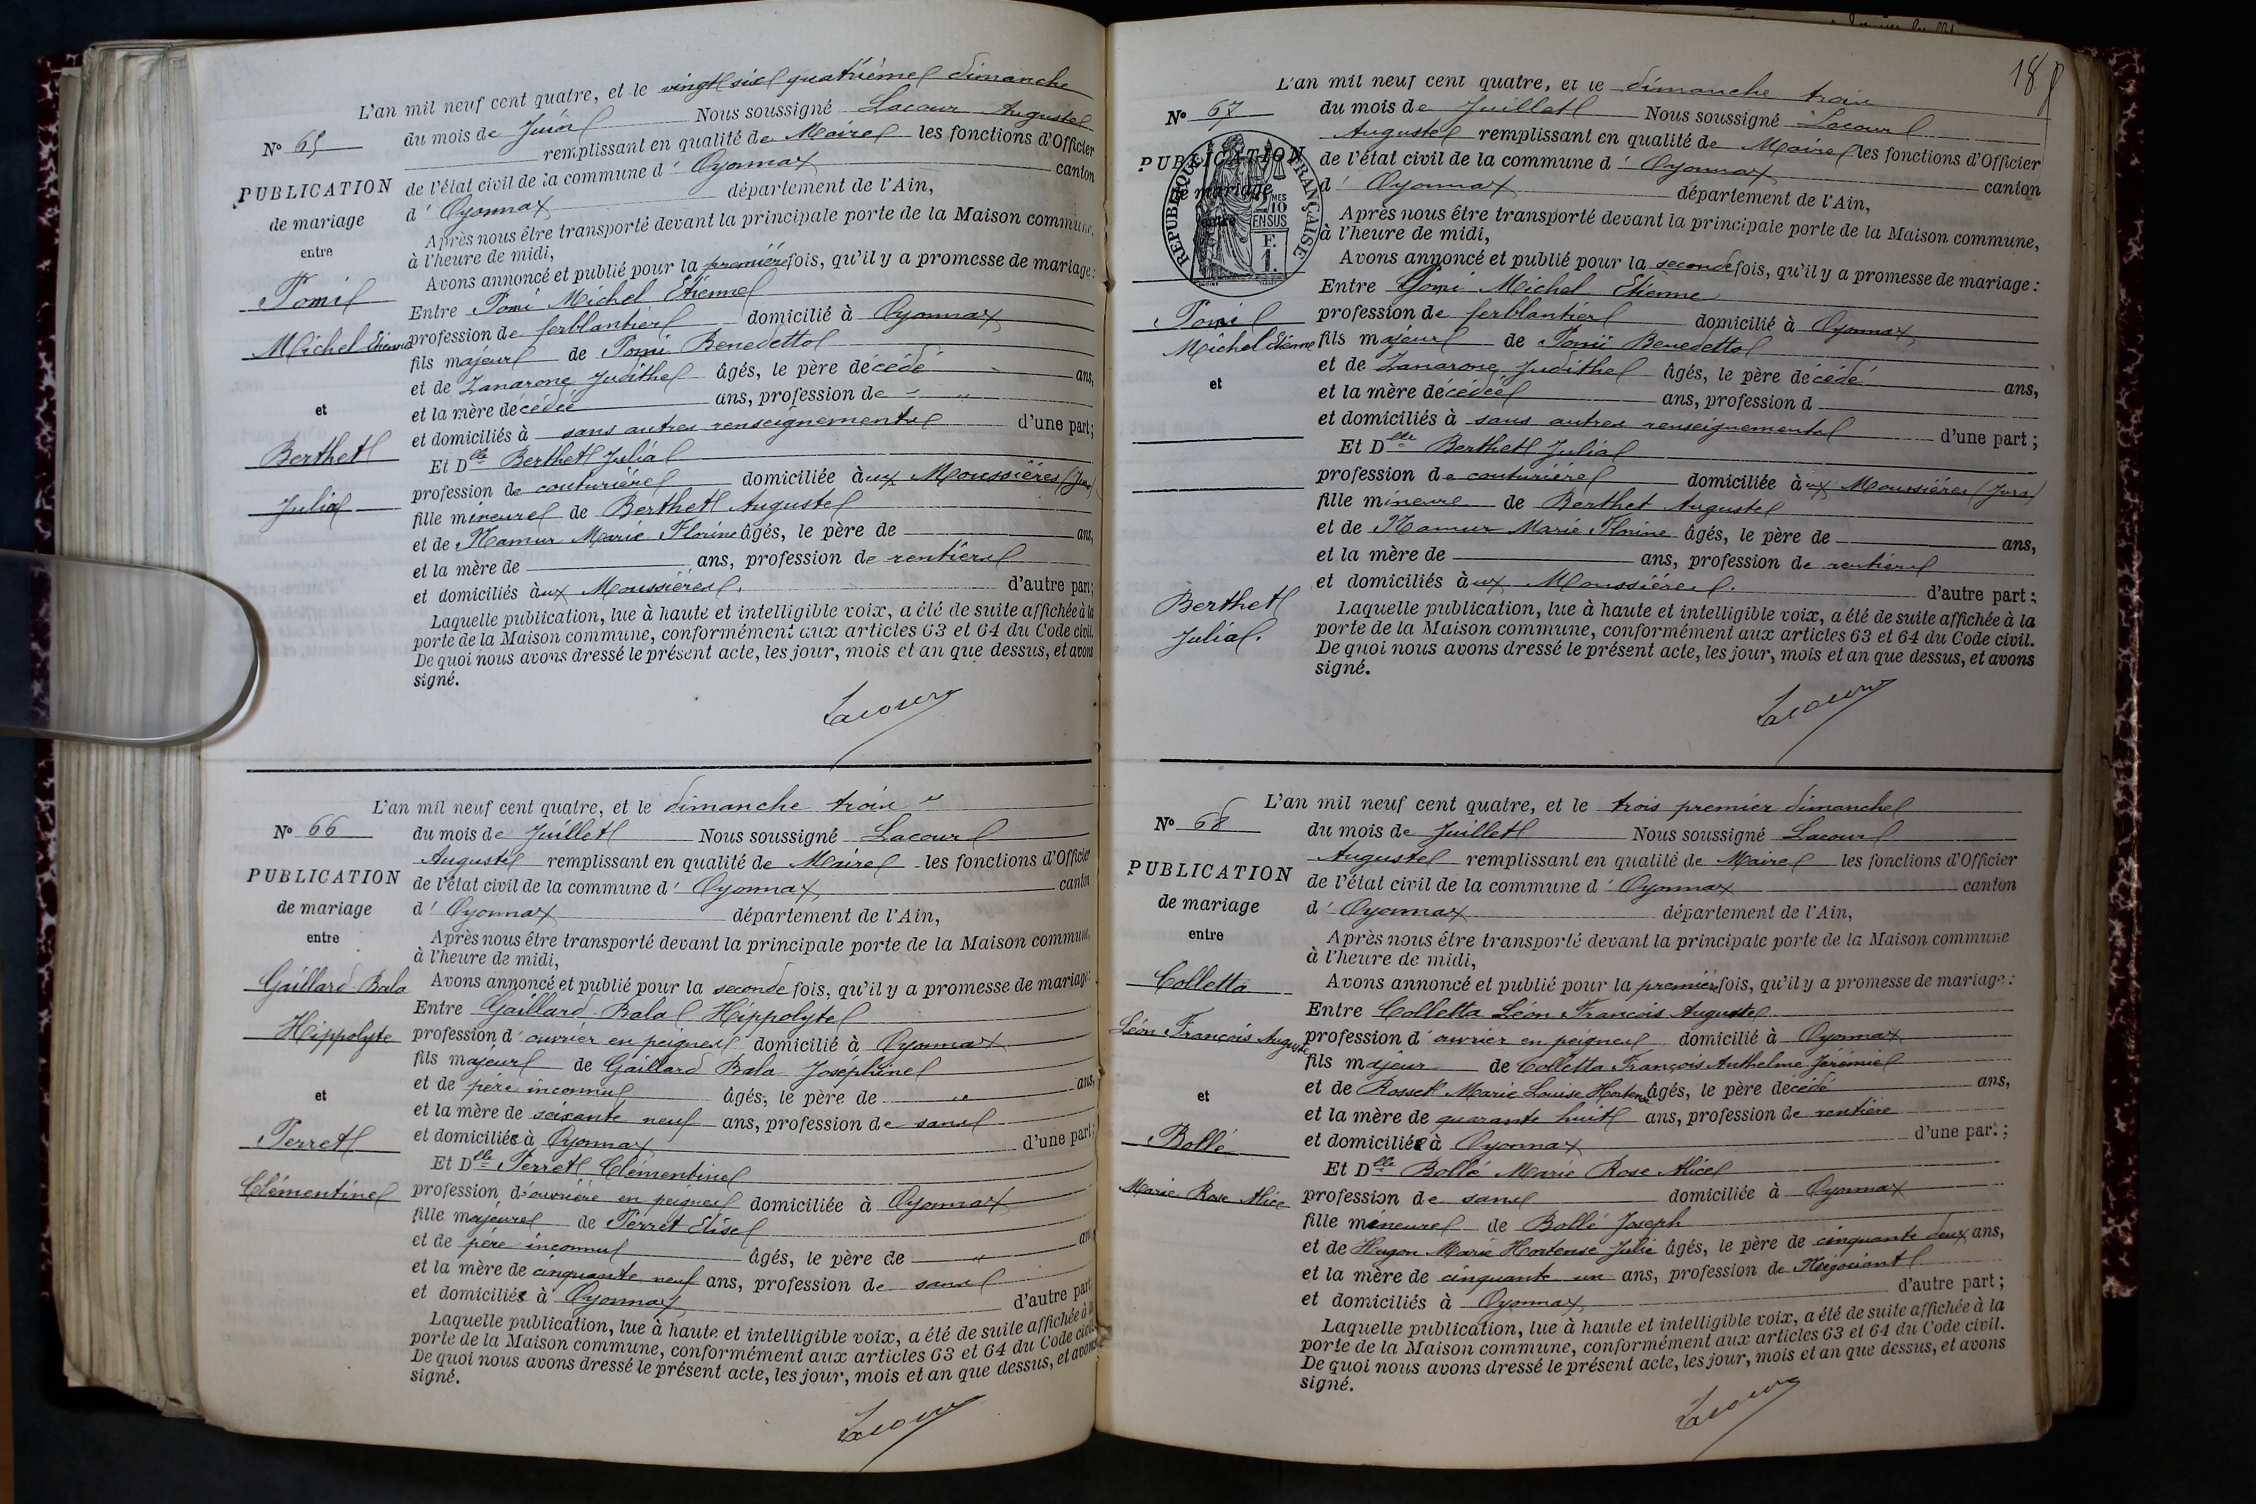 L'an mil neuf cent quatre, et le vingt six quatrième dimanche
N° 65
du mois de Juin Nous soussigné Lacour Auguste
remplissant en qualité de Maire les fonctions d'Officier
PUBLICATION
de l'état civil de la commune d' Oyonnax canton
de mariage
d' Oyonnax département de l'Ain,
entre
Après nous être transporté devant la principale porte de la Maison commune,
à l'heure de midi,
Avons annoncé et publié pour la première fois, qu'il y a promesse de mariage :
Tomi
Entre Tomi Michel Etienne
Michel Etienne
profession de ferblantier domicilié à Oyonnax
fils majeur de Tomi Benedetto
et de Zanarone Judithe âgés, le père décédé ans,
et
et la mère décédée ans, profession de
et domiciliés à sans autres renseignements d'une part ;
Berthet
Et Dlle Berthet Julia
profession de couturière domiciliée aux Moussières (Jura)
Julia
fille mineure de Berthet Auguste
et de Mamur Marie Florine âgés, le père de ans,
et la mère de ans, profession de rentiers
et domiciliés aux Moussières. d'autre part ;
Laquelle publication, lue à haute et intelligible voix, a été de suite affichée à la
porte de la Maison commune, conformément aux articles 63 et 64 du Code civil.
De quoi nous avons dressé le présent acte, les jour, mois et an que dessus, et avons
signé.
Lacour
L'an mil neuf cent quatre, et le dimanche trois
N° 66
du mois de Juillet Nous soussigné Lacour
Auguste remplissant en qualité de Maire les fonctions d'Officier
PUBLICATION
de l'état civil de la commune d' Oyonnax canton
de mariage
d' Oyonnax département de l'Ain,
entre
Après nous être transporté devant la principale porte de la Maison commune,
à l'heure de midi,
Gaillard Bala
Avons annoncé et publié pour la seconde fois, qu'il y a promesse de mariage :
Entre Gaillard Bala Hippolyte
Hippolyte
profession d' ouvrier en peignes domicilié à Oyonnax
fils majeur de Gaillard Bala Joséphine
et de père inconnu âgés, le père de ans,
et
et la mère de soixante neuf ans, profession de sans
Perret
et domiciliée à Oyonnax d'une part ;
Et Dlle Perret Clémentine
Clémentine
profession d'ouvrière en peignes domiciliée à Oyonnax
fille majeure de Perret Elise
et de père inconnu âgés, le père de ans,
et la mère de cinquante neuf ans, profession de sans
et domiciliée à Oyonnax d'autre part
Laquelle publication, lue à haute et intelligible voix, a été de suite affichée à la
porte de la Maison commune, conformément aux articles 63 et 64 du Code civil.
De quoi nous avons dressé le présent acte, les jour, mois et an que dessus, et avons
signé.
Lacour
18
L'an mil neuf cent quatre, et le dimanche trois
N° 67
du mois de Juillet Nous soussigné Lacour
Auguste remplissant en qualité de Maire les fonctions d'Officier
PUBLICATION
de l'état civil de la commune d' Oyonnax canton
de mariage
d' Oyonnax département de l'Ain,
entre
REPUBLIQUE FRANÇAISE
2 MES 10 EN SUS
F. 1.
Après nous être transporté devant la principale porte de la Maison commune,
à l'heure de midi,
Avons annoncé et publié pour la seconde fois, qu'il y a promesse de mariage :
Entre Tomi Michel Etienne
Tomi
profession de ferblantier domicilié à Oyonnax
Michel Etienne
fils majeur de Tomi Benedetto
et de Zanarone Judithe âgés, le père décédé ans,
et
et la mère décédée ans, profession d
et domiciliés à sans autres renseignements d'une part ;
Et Dlle Berthet Julia
profession de couturière domiciliée aux Moussières (Jura)
fille mineure de Berthet Auguste
et de Mamur Marie Florine âgés, le père de ans,
et la mère de ans, profession de rentiers
et domiciliés aux Moussières. d'autre part ;
Berthet
Julia.
Laquelle publication, lue à haute et intelligible voix, a été de suite affichée à la
porte de la Maison commune, conformément aux articles 63 et 64 du Code civil.
De quoi nous avons dressé le présent acte, les jour, mois et an que dessus, et avons
signé.
Lacour
L'an mil neuf cent quatre, et le trois premier dimanche
N° 68
du mois de Juillet Nous soussigné Lacour
Auguste remplissant en qualité de Maire les fonctions d'Officier
PUBLICATION
de l'état civil de la commune d' Oyonnax canton
de mariage
d' Oyonnax département de l'Ain,
entre
Après nous être transporté devant la principale porte de la Maison commune
à l'heure de midi,
Colletta
Avons annoncé et publié pour la première fois, qu'il y a promesse de mariage :
Entre Colletta Léon François Auguste
Léon François Auguste
profession d' ouvrier en peignes domicilié à Oyonnax
fils majeur de Colletta François Anthelme Jérémie
et de Rosset Marie Louise Hortense âgés, le père décédé ans,
et
et la mère de quarante huit ans, profession de rentière
Bollé
et domiciliée à Oyonnax d'une part ;
Et Dlle Bollé Marie Rose Alice
Marie Rose Alice
profession de sans domiciliée à Oyonnax
fille mineure de Bollé Joseph
et de Hugon Marie Hortense Julie âgés, le père de cinquante deux ans,
et la mère de cinquante un ans, profession de Négociant
et domiciliés à Oyonnax d'autre part ;
Laquelle publication, lue à haute et intelligible voix, a été de suite affichée à la
porte de la Maison commune, conformément aux articles 63 et 64 du Code civil.
De quoi nous avons dressé le présent acte, les jour, mois et an que dessus, et avons
signé.
Lacour